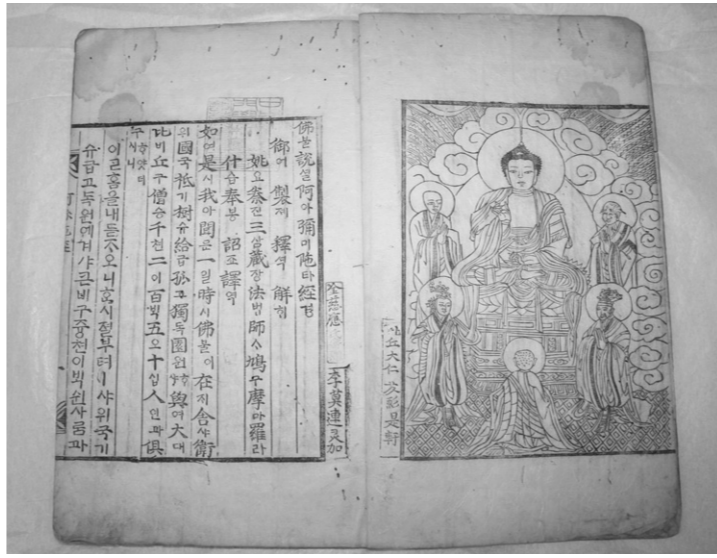 佛불說셜阿아彌미陁타經경
御어製졔譯역解ᄒᆡ
姚요秦진三삼藏장法법師ᄉᆞ鳩구摩마羅라
什습奉봉 詔조譯역
如여是시我아聞문一일時시佛불이在ᄌᆡ舍샤衛
위國국祇기樹슈給급孤고獨독園원ᄒᆞ샤與여大대
比비丘구僧승千쳔二이百ᄇᆡᆨ五오十십人인과俱
구ᄒᆞ얏더시니
이ᄀᆞᆮ홈을내듣ᄌᆞ오니ᄒᆞᆫ시졀부톄샤위국기
슈급고독원에겨샤큰비구즁쳔이ᄇᆡᆨ쉰사ᄅᆞᆷ과
李莫連灵加